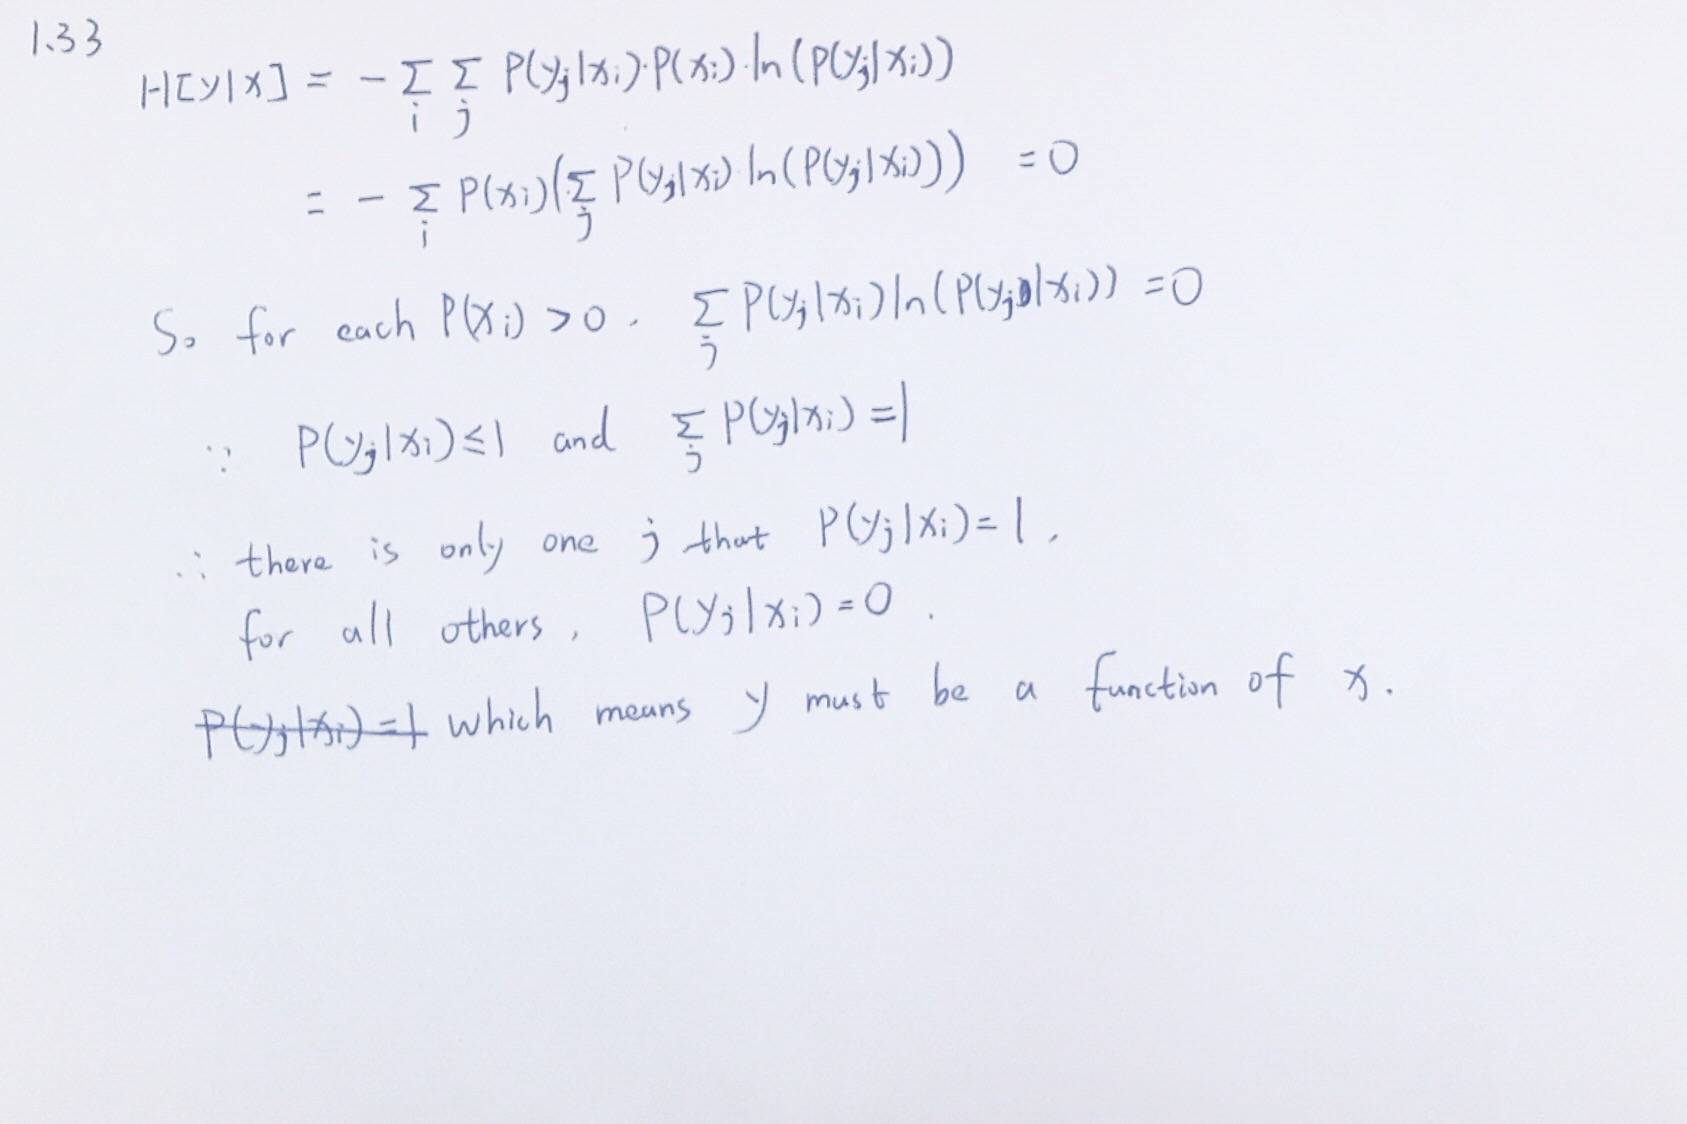 1.33
H[y|x] = - Σ_i Σ_j P(y_j|x_i)·P(x_i)·ln(P(y_j|x_i))
= - Σ_i P(x_i)(Σ_j P(y_j|x_i) ln(P(y_j|x_i))) = 0
So for each P(x_i) > 0. Σ_j P(y_j|x_i) ln(P(y_j|x_i)) = 0
∵ P(y_j|x_i) ≤ 1 and Σ_j P(y_j|x_i) = 1
∴ there is only one j that P(y_j|x_i) = 1,
for all others, P(y_j|x_i) = 0.
P(y_j|x_i) = 1 which means y must be a function of x.